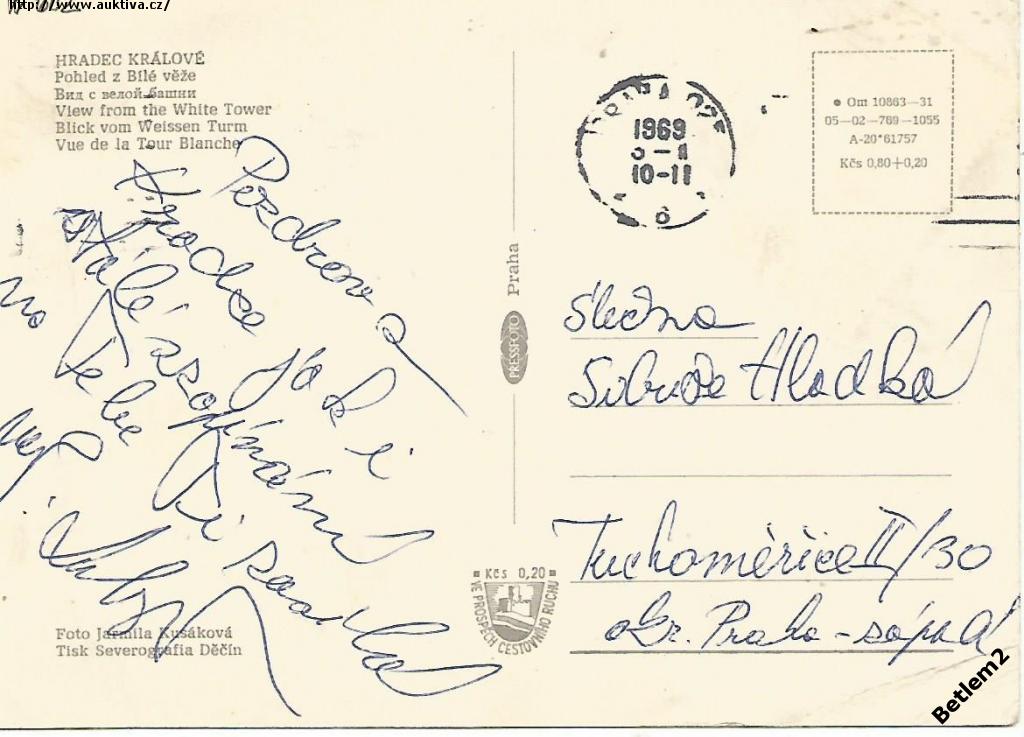 http://www.auktiva.cz/
HRADEC KRÁLOVÉ
Pohled z Bílé věže
Вид с велой башни
View from the White Tower
Blick vom Weissen Turm
Vue de la Tour Blanche
Pozdrav z
Hradce
stálé vzpomínání
na Tebe
PRAHA 025
1969
10-11
6
● Om 10863—31
05—02—769—1055
A-20*61757
Kčs 0,80+0,20
Praha
PRESSFOTO
Slečna
Hladká
Tuchoměřice II/30
okr. Praha-západ
■ Kčs 0,20 ■
VE PROSPĚCH CESTOVNÍHO RUCHU
Foto Jarmila Kusáková
Tisk Severografia Děčín
Betlem2